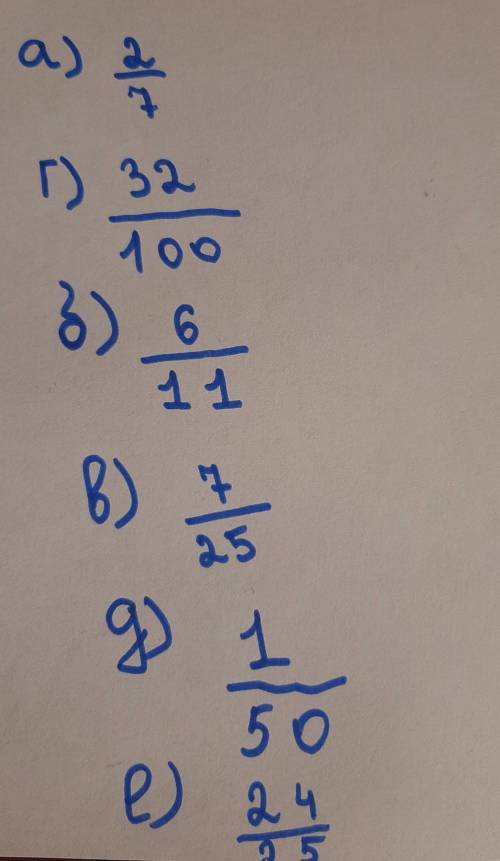 а) 2/7
г) 32/100
б) 6/11
в) 7/25
д) 1/50
е) 24/